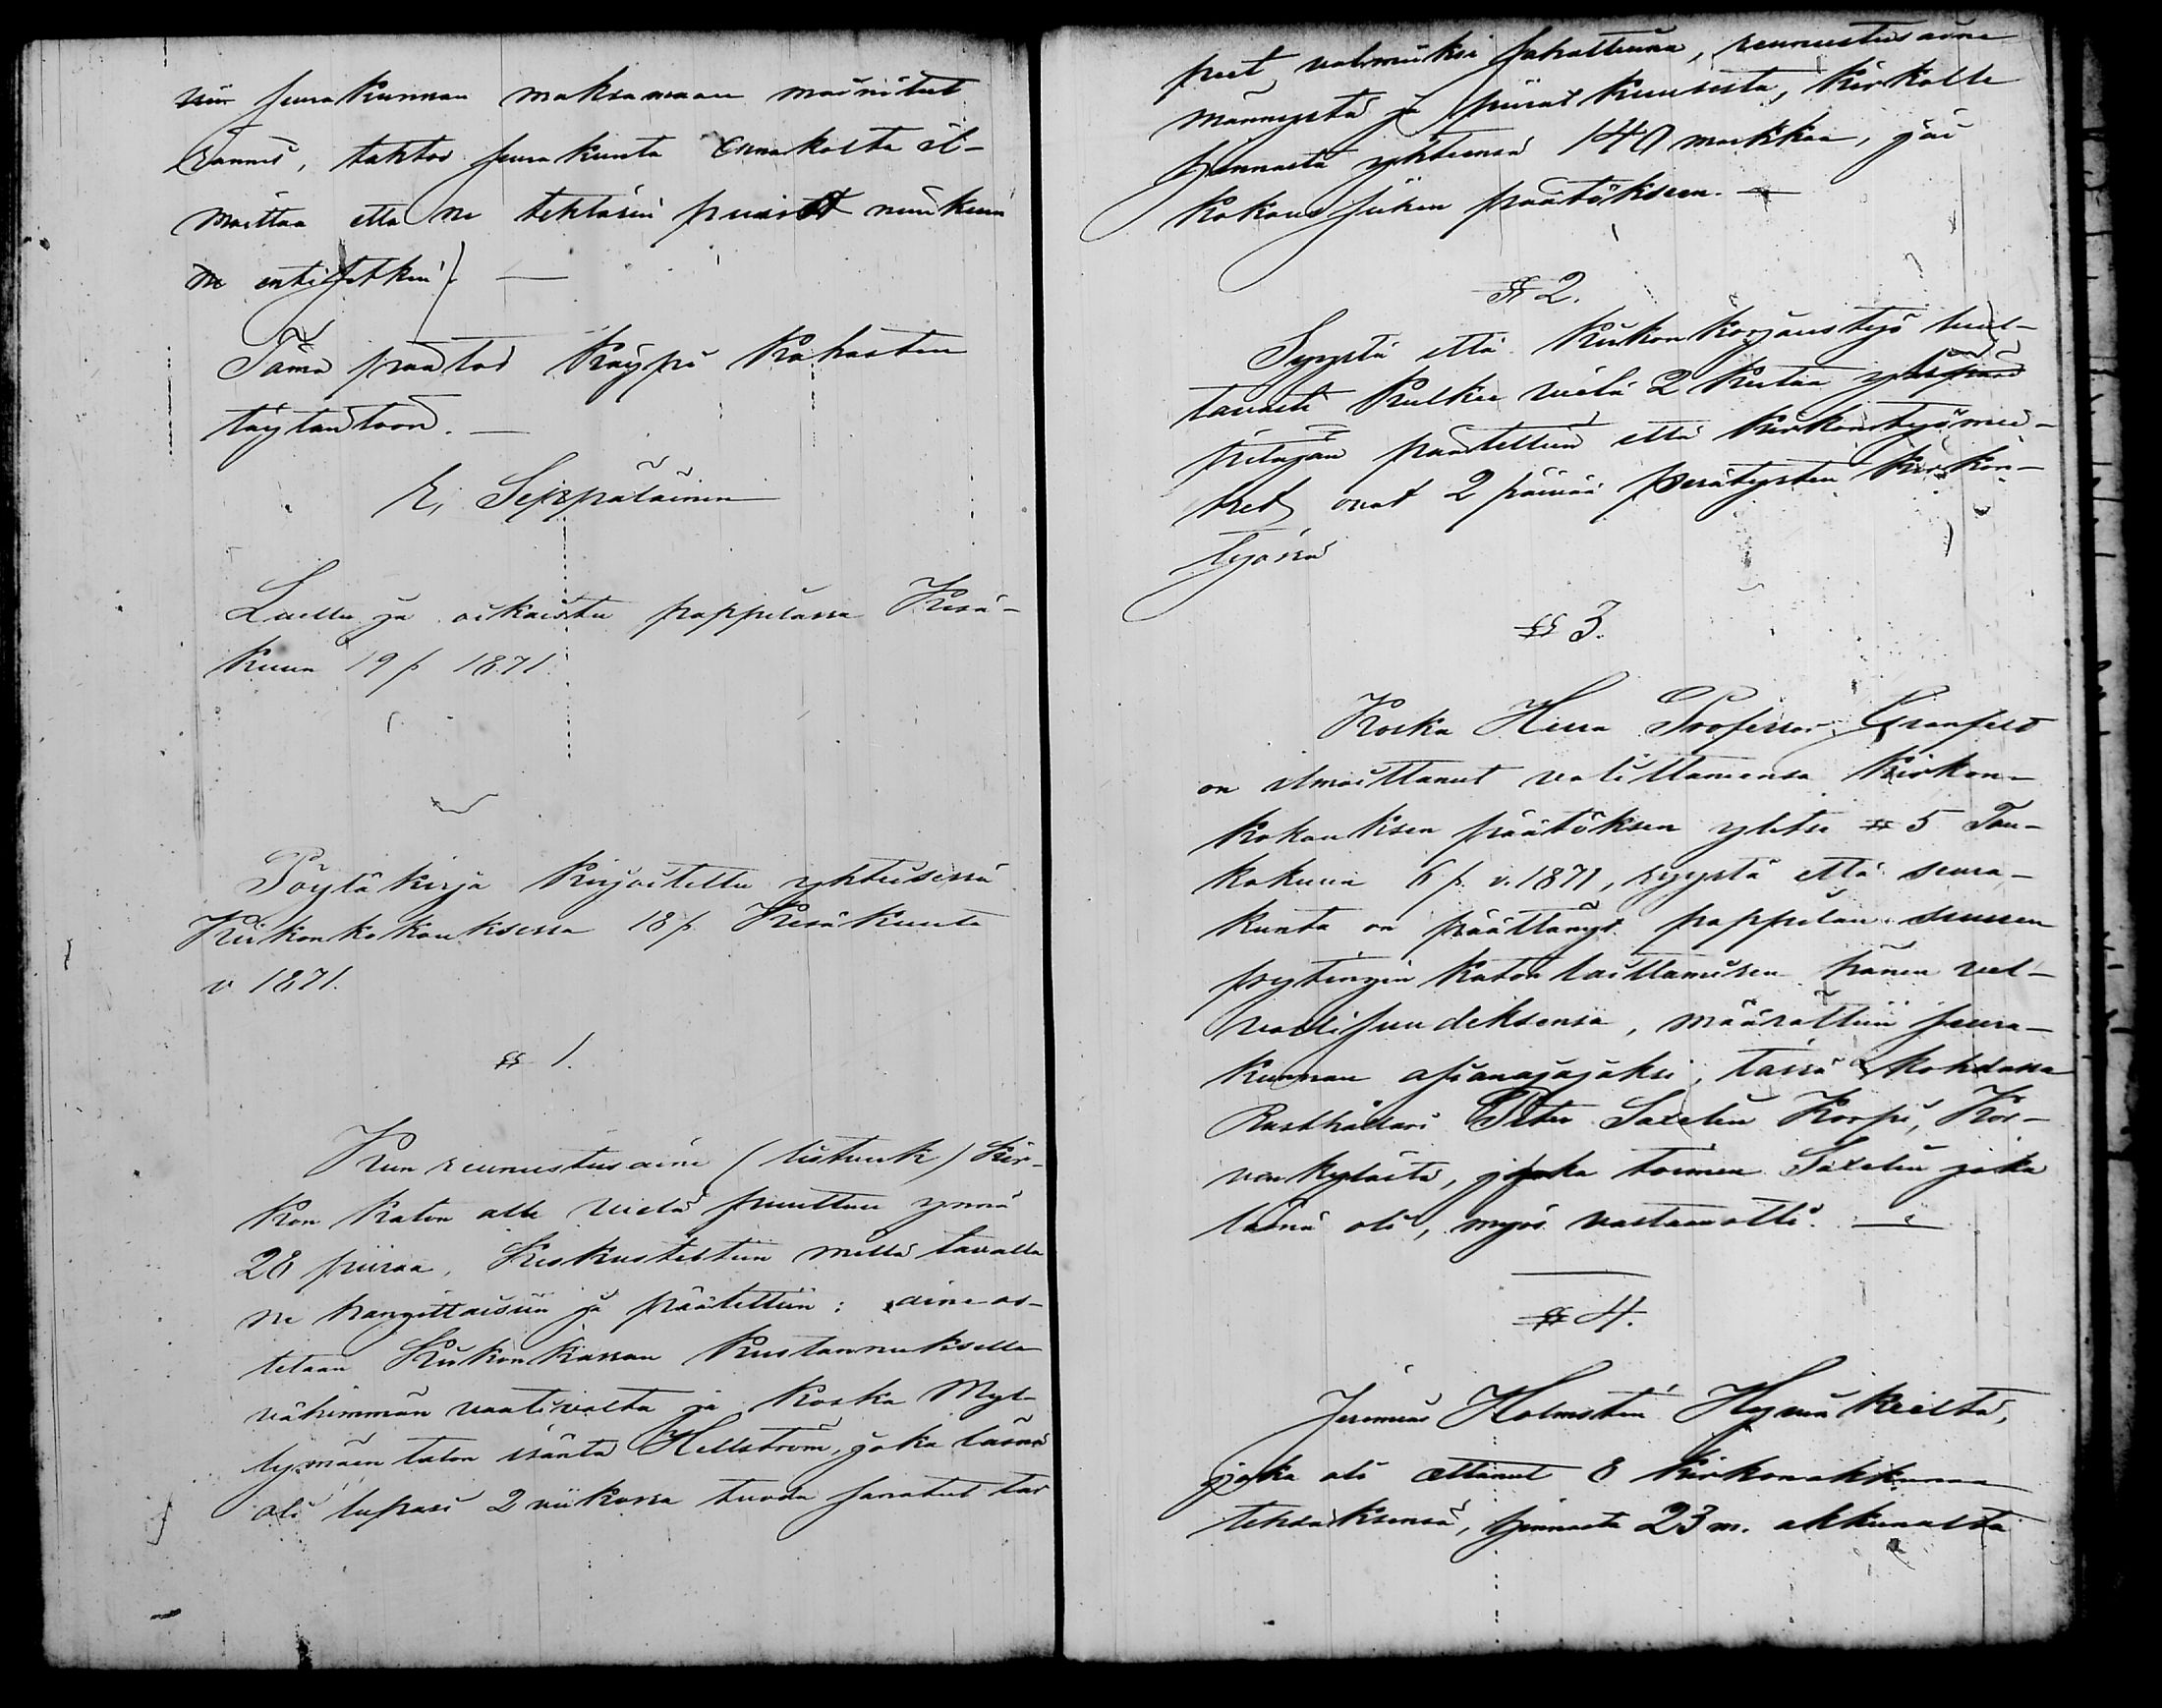 niin seurakunnan maksamaan mainitut
tahtoo seurakunta ennakolta il-
moittaa että ne tehtäisiin puusta niinkuin
ne entisetkin. —
Tämä päätös käypi kohdasten
täytäntöön. —
E. Seppäläinen
Luettu ja oikaistu pappilassa Kesä-
kuun 19 p 1871.
Pöytäkirja kirjoitettu yhteisessä
Kirkonkokouksessa 18 p. Kesäkuuta
v 1871.
§ 1.
Kun reunustusaine (listverk) Kir-
kon katon alle vielä puuttuu ynnä
28 piiraa, Keskusteltiin millä tavalla
ne hangittaisiin ja päätettiin: aine os-
tetaan Kirkonkassan kustannuksella
vähimmän vaativalta ja koska Myl-
lymäen talon isäntä Hellström, joka läsnä
oli lupasi 2 viikossa tuoda sanotut tar
peet, valmiiksi sahattuina, reunustusaine
männystä ja piirat kuusesta, kirkolle
hinnasta yhteensä 140 markkaa, jäi
Kokous siihen päätökseen. —
§ 2.
Syystä että Kirkon korjaustyö luul-
tavasti kulkee vielä 2 kertaa
pitäjän päätettiin että kirkontyömie-
het ovat 2 päivää perätysten kirkon-
työssä
§ 3.
Koska Herra Professor Granfelt
on ilmoittanut valittamensa Kirkon-
kokouksen päätöksen ylitse § 5 Tou-
kokuun 6 p. v. 1871, syystä että seura-
kunta on päättänyt pappilan suuren
pytingin katon laittamisen hänen vel-
vollisuudeksensa, määrättiin seura-
kunnan asianajajaksi tässä kohdassa
Rusthollari Peter Saxelin Korpi, Kir-
von kylästä, jonka toimen Saxelin joka
läsnä oli, myös vastaanotti. —
§ 4.
Jeremias Holmstén
joka oli ottanut 8 kirkonakkunaa
tehdäksensä, hinnasta 23 m. akkunalta